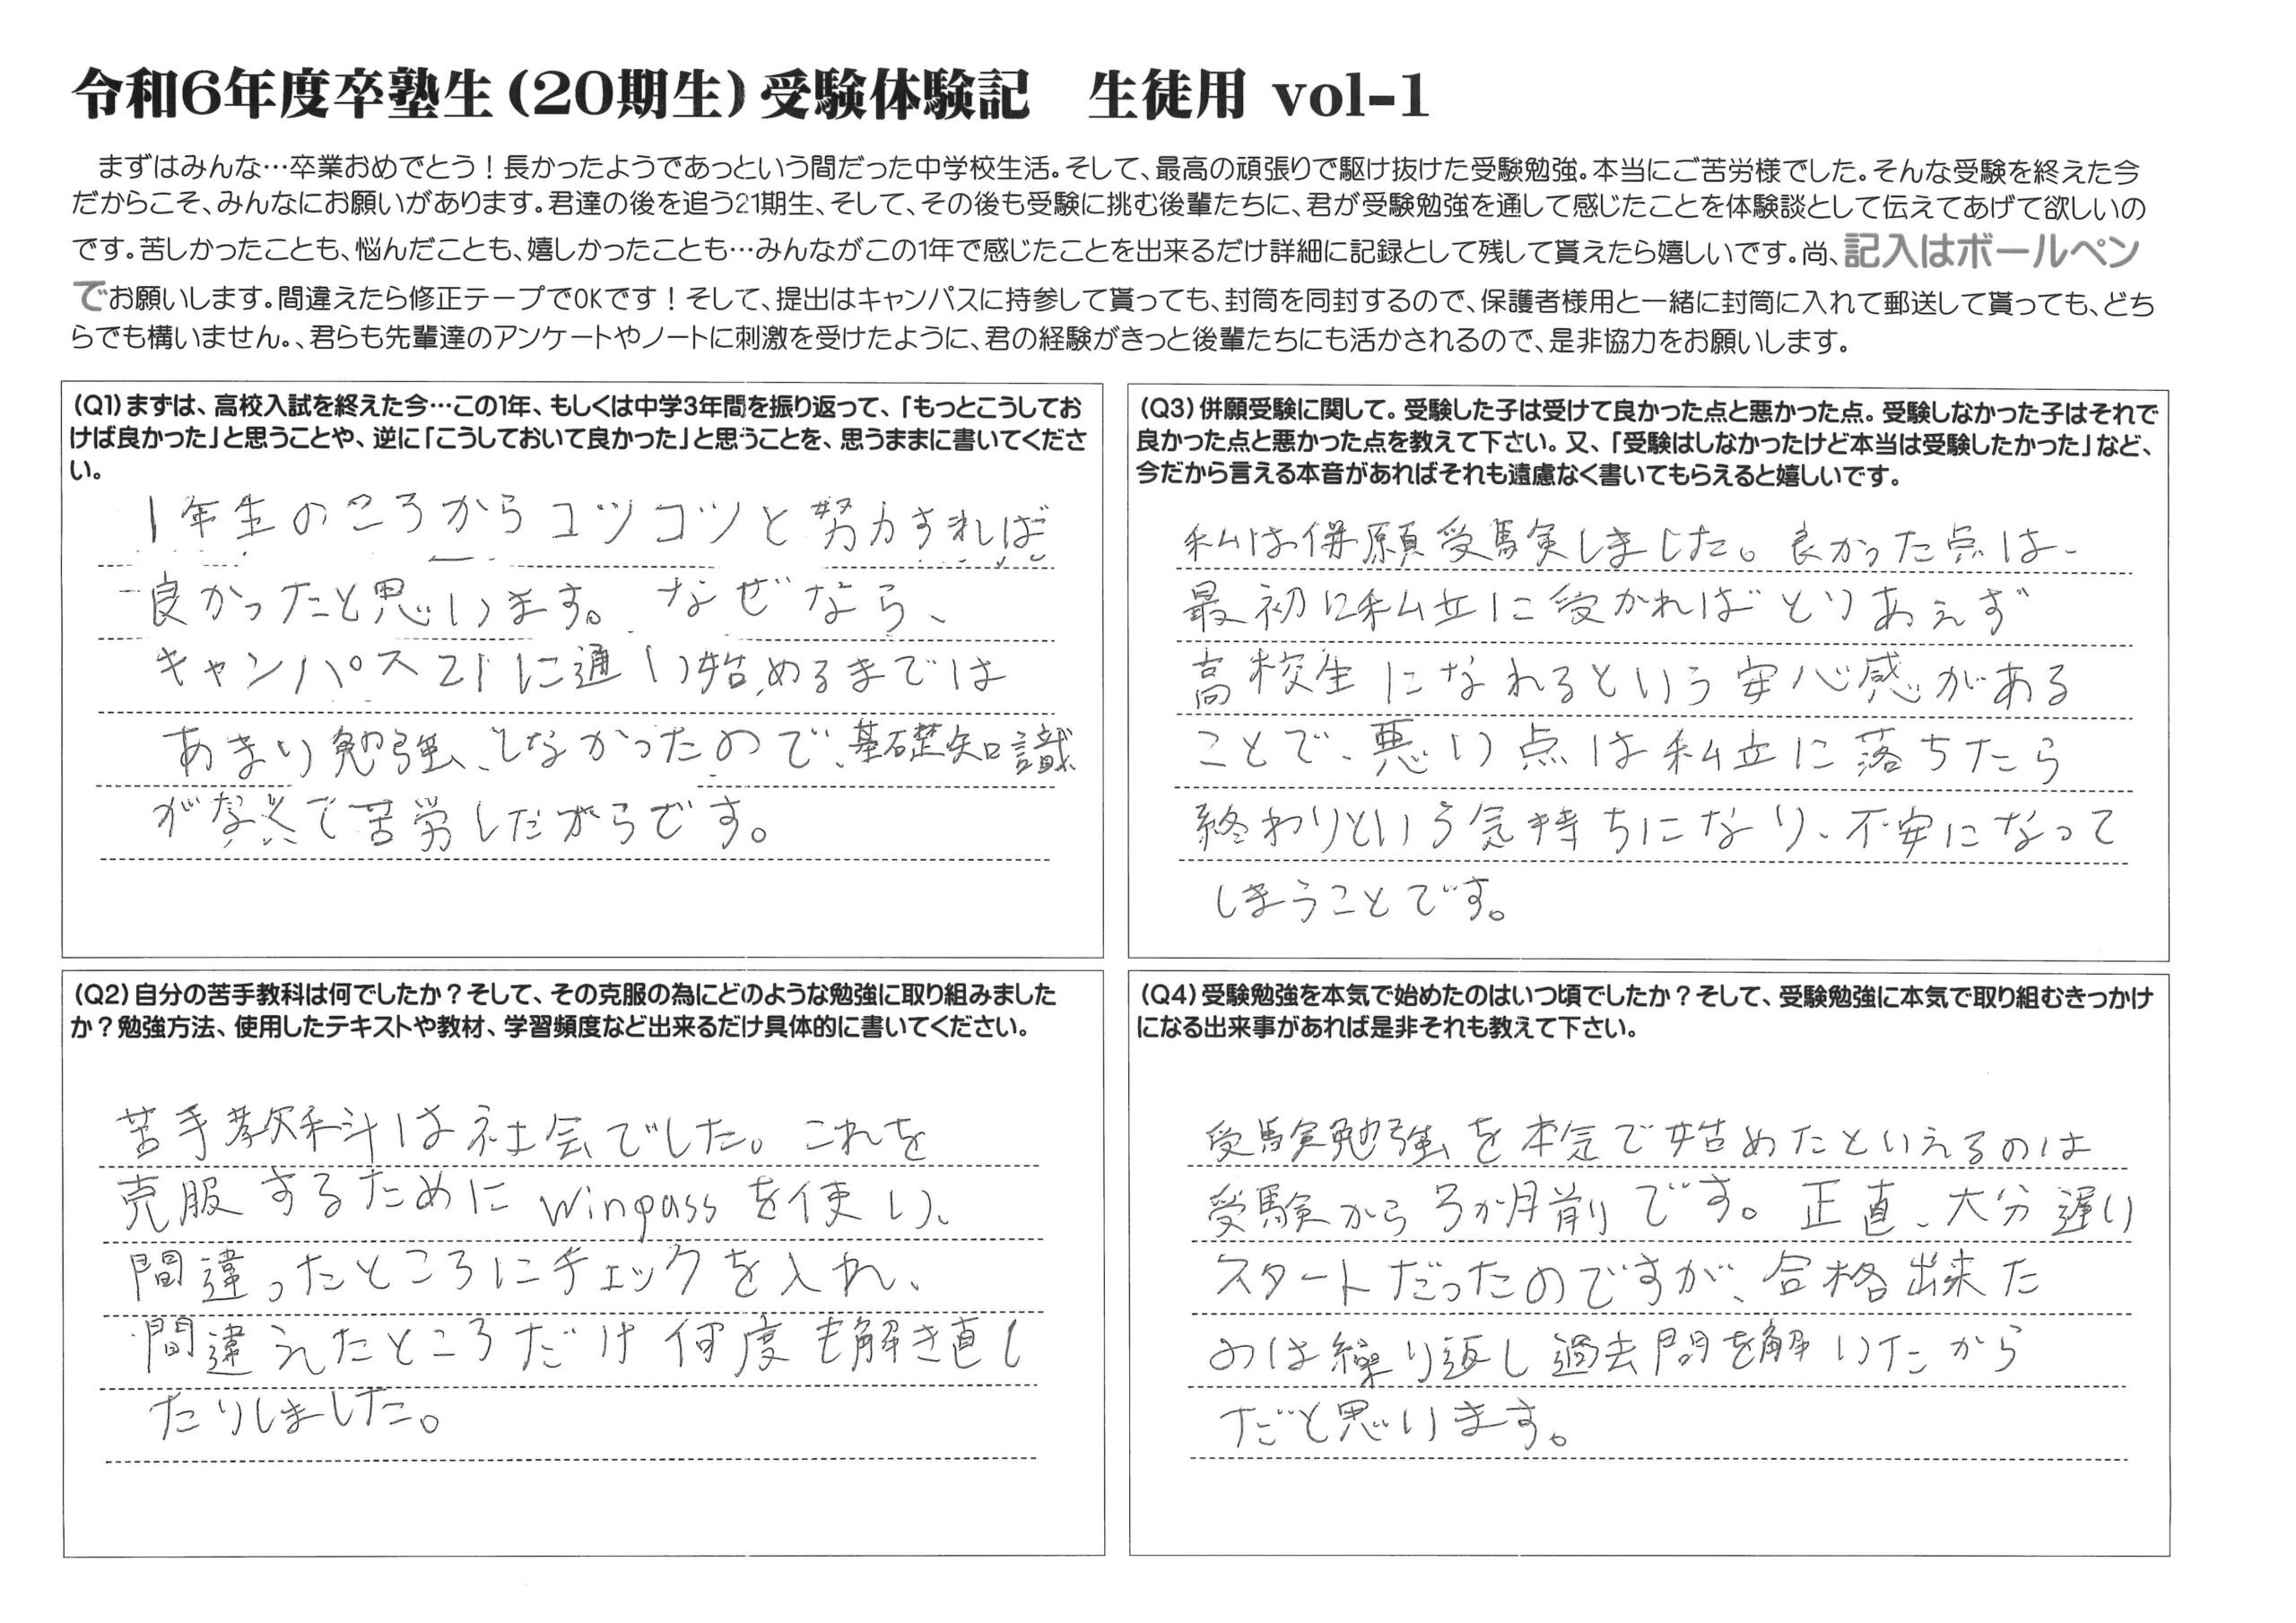 令和6年度卒塾生(20期生)受験体験記　生徒用 vol-1
まずはみんな…卒業おめでとう！長かったようであっという間だった中学校生活。そして、最高の頑張りで駆け抜けた受験勉強。本当にご苦労様でした。そんな受験を終えた今
だからこそ、みんなにお願いがあります。君達の後を追う21期生、そして、その後も受験に挑む後輩たちに、君が受験勉強を通して感じたことを体験談として伝えてあげて欲しいの
です。苦しかったことも、悩んだことも、嬉しかったことも…みんながこの1年で感じたことを出来るだけ詳細に記録として残して貰えたら嬉しいです。尚、記入はボールペン
でお願いします。間違えたら修正テープでOKです！そして、提出はキャンパスに持参して貰っても、封筒を同封するので、保護者様用と一緒に封筒に入れて郵送して貰っても、どち
らでも構いません。、君らも先輩達のアンケートやノートに刺激を受けたように、君の経験がきっと後輩たちにも活かされるので、是非協力をお願いします。
(Q1)まずは、高校入試を終えた今…この1年、もしくは中学3年間を振り返って、「もっとこうしてお
けば良かった」と思うことや、逆に「こうしておいて良かった」と思うことを、思うままに書いてくださ
い。
1年生のころからコツコツと努力すれば
良かったと思います。なぜなら、
キャンパス21に通い始めるまでは
あまり勉強しなかったので、基礎知識
がなくて苦労したからです。
(Q2)自分の苦手教科は何でしたか？そして、その克服の為にどのような勉強に取り組みました
か？勉強方法、使用したテキストや教材、学習頻度など出来るだけ具体的に書いてください。
苦手教科は社会でした。これを
克服するためにwinpassを使い、
間違ったところにチェックを入れ、
間違えたところだけ何度も解き直し
たりしました。
(Q3)併願受験に関して。受験した子は受けて良かった点と悪かった点。受験しなかった子はそれで
良かった点と悪かった点を教えて下さい。又、「受験はしなかったけど本当は受験したかった」など、
今だから言える本音があればそれも遠慮なく書いてもらえると嬉しいです。
私は併願受験しました。良かった点は、
最初に私立に受かればとりあえず
高校生になれるという安心感がある
ことで、悪い点は私立に落ちたら
終わりという気持ちになり、不安になって
しまうことです。
(Q4)受験勉強を本気で始めたのはいつ頃でしたか？そして、受験勉強に本気で取り組むきっかけ
になる出来事があれば是非それも教えて下さい。
受験勉強を本気で始めたといえるのは
受験から3か月前です。正直、大分遅い
スタートだったのですが、合格出来た
のは繰り返し過去問を解いたから
だと思います。